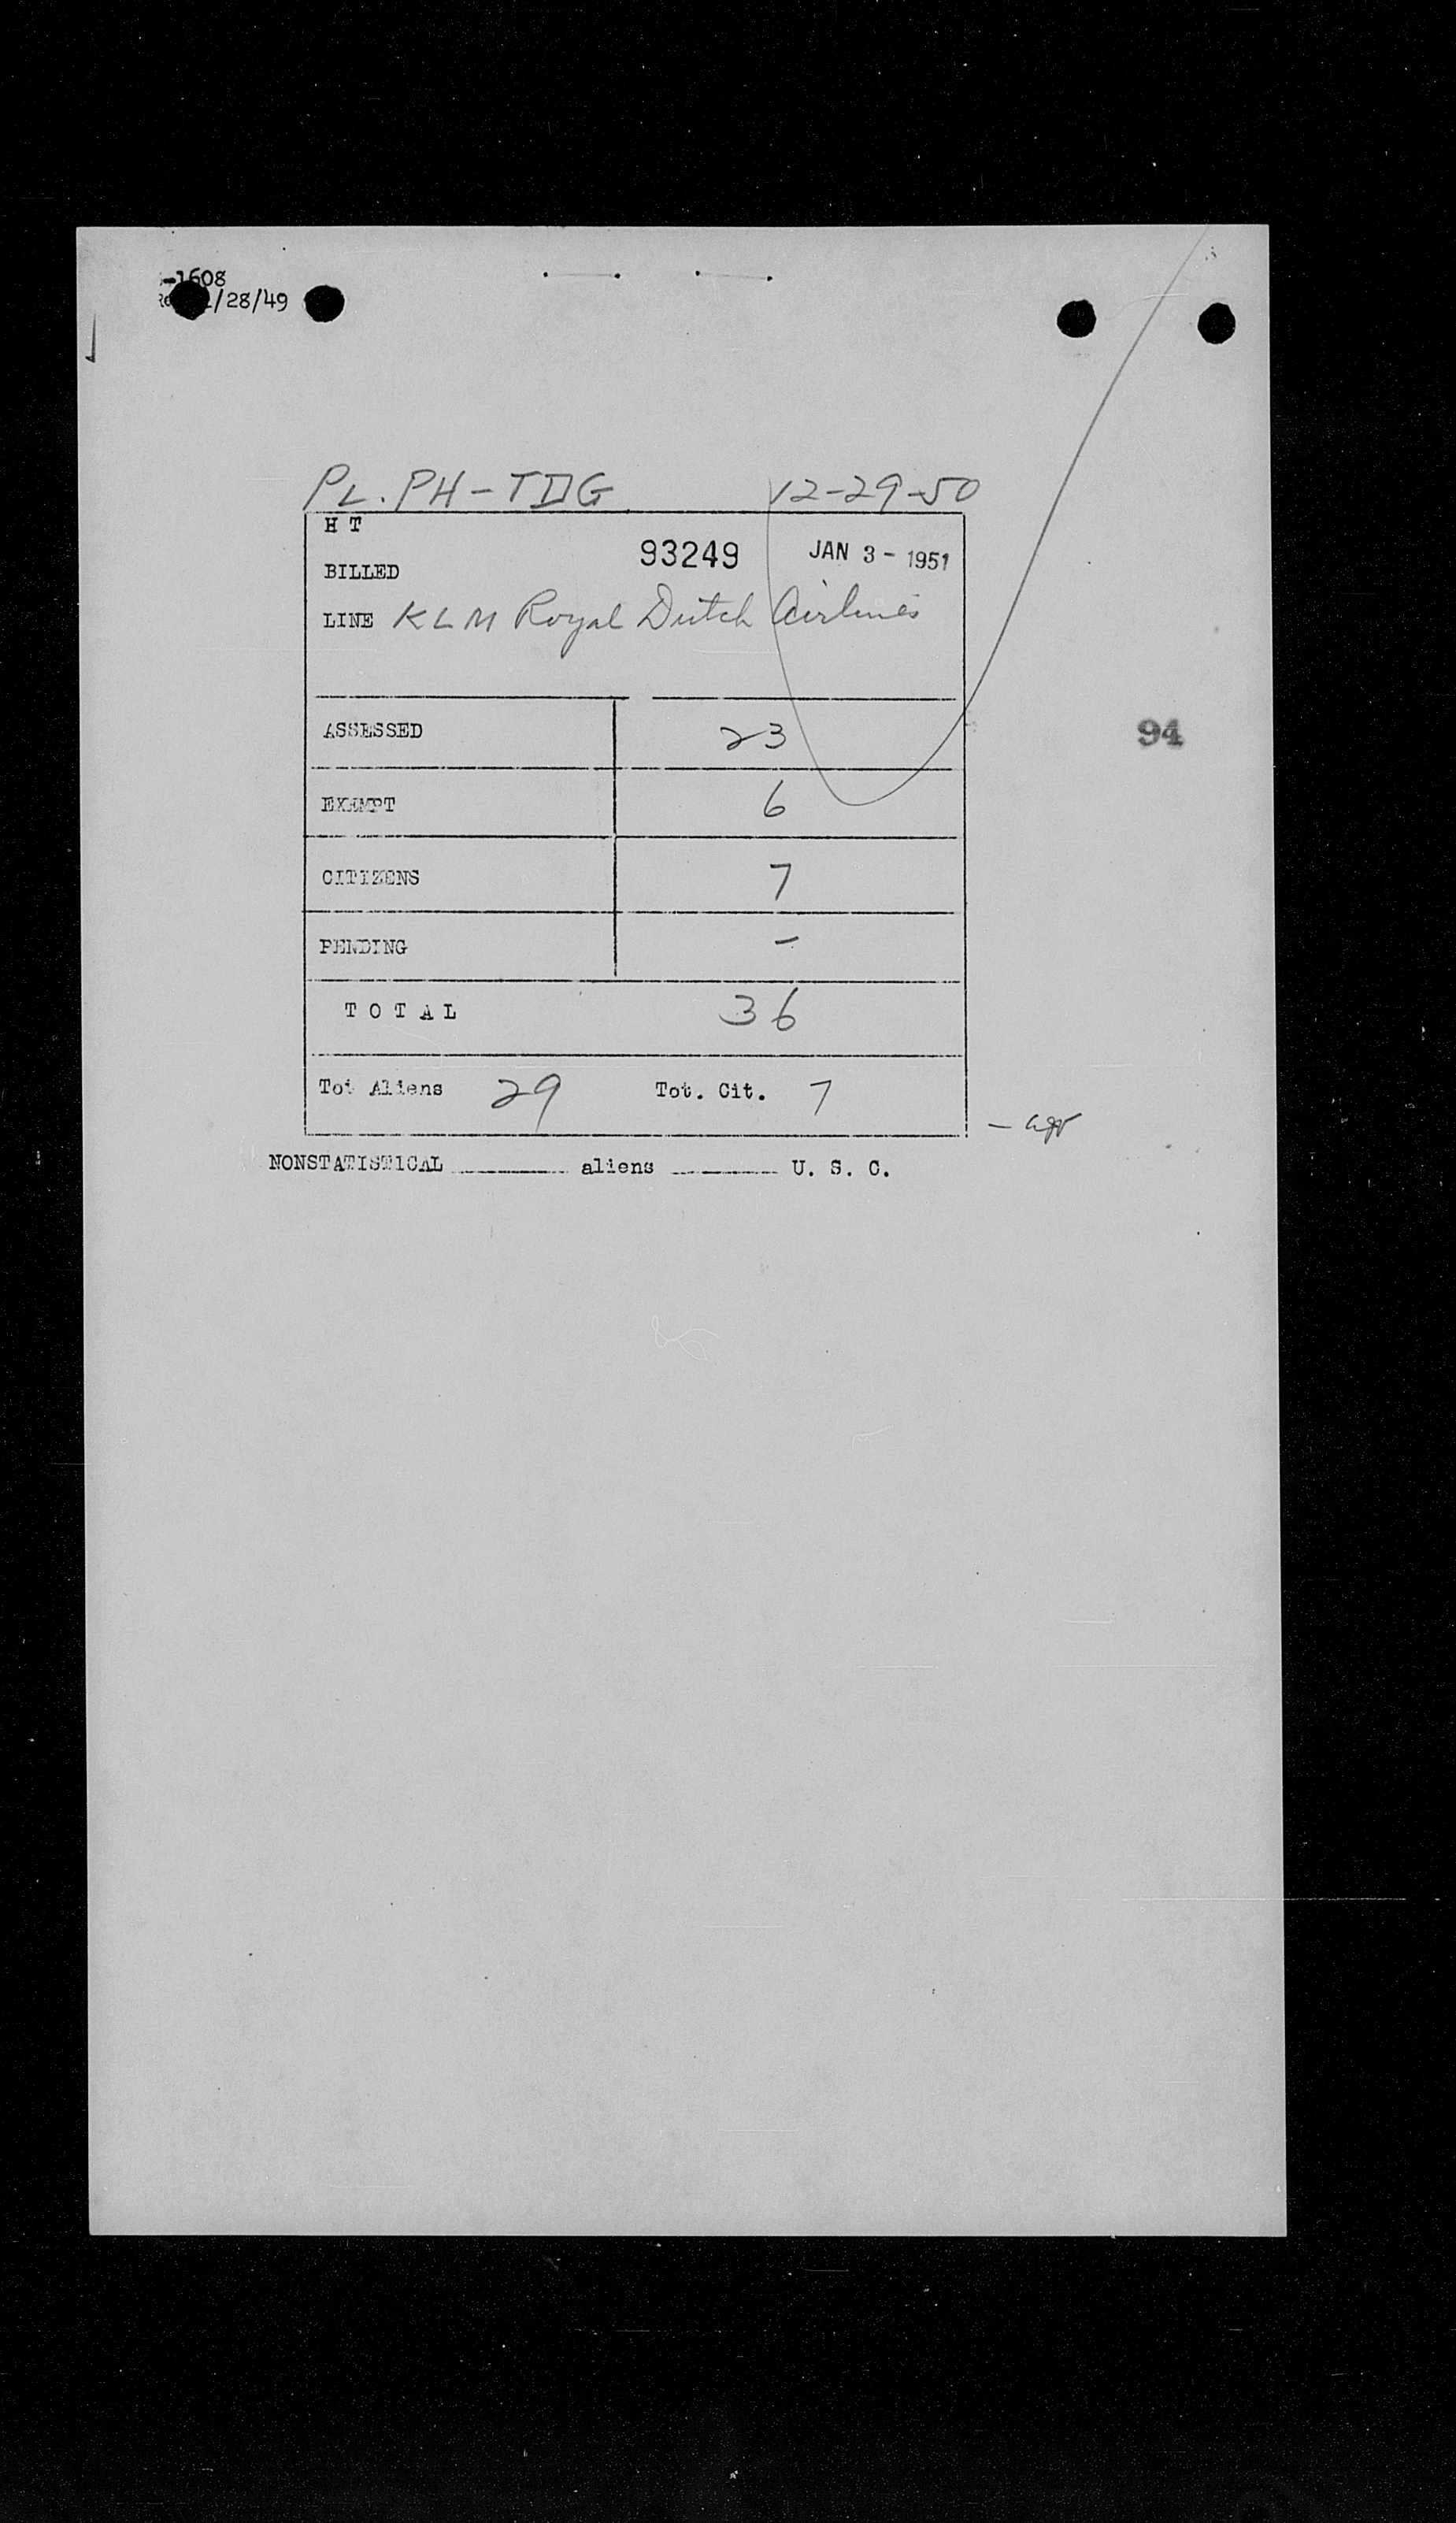 -1608
/28/49
PL. PH-TDG 12-29-50
H T
BILLED 93249 JAN 3 - 1951
LINE KLM Royal Dutch Airlines
ASSESSED 23
94
EXEMPT 6
CITIZENS 7
PENDING -
TOTAL 36
Tot Aliens 29 Tot. Cit. 7
NONSTATISTICAL ______ aliens ______ U. S. C.